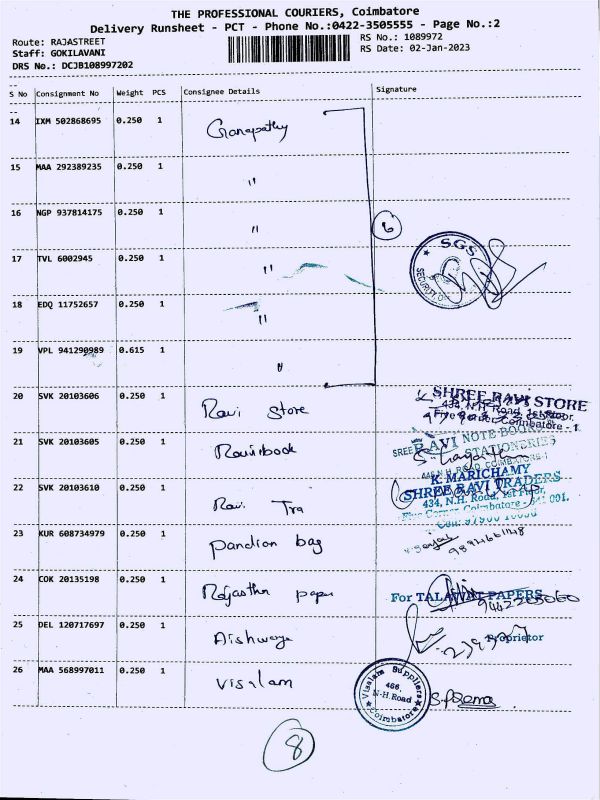 THE PROFESSIONAL COURIERS, Coimbatore
Delivery Runsheet - PCT - Phone No.:0422-3505555 - Page No.:2
Route: RAJASTREET RS No.: 1089972
Staff: GOKILAVANI RS Date: 02-Jan-2023
DRS No.: DCJB108997202
S No Consignment No Weight PCS Consignee Details Signature
14 IXM 502868695 0.250 1 Ganapathy
15 MAA 292389235 0.250 1 "
16 NGP 937814175 0.250 1 "
6
17 TVL 6002945 0.250 1 "
SGS
SECURITY
18 EDQ 11752657 0.250 1 "
19 VPL 941290989 0.615 1 "
20 SVK 20103606 0.250 1 Ravi Store
SHREE RAVI STORE
434, N.H. Road, 1st Floor,
Five Corner, Coimbatore - 1
21 SVK 20103605 0.250 1 Ravi book
SREE RAVI NOTE BOOK
STATIONERIES
N.H. ROAD, COIMBATORE-1
K. MARICHAMY
22 SVK 20103610 0.250 1 Ravi Tra
SHREE RAVI TRADERS
434, N.H. Road, 1st Floor,
Five Corner, Coimbatore - 641 001.
23 KUR 608734979 0.250 1 Pandian bag
24 COK 20135198 0.250 1 Rajasthan paper
For PAPERS
25 DEL 120717697 0.250 1 Aishwarya
Proprietor
26 MAA 568997011 0.250 1 Visalam
Visalam Suppliers
466,
N-H.Road
Coimbatore
8